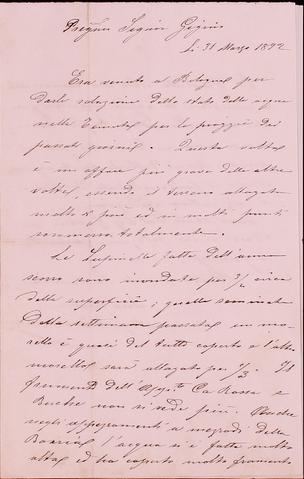 Pregmo Signor Gigino
Li 31 Marzo 1892
Era venuto a Bologna per
darle relazione dello stato delle acque
nella Tenuta per le pioggie dei
passati giorni. Questa volta
è un affare più grave delle altre
volte, essendo il terreno allagato
molto di più ed in molti punti
sommerso totalmente.
Le Lupinelle fatte dell'anno
sono inondate per 3/4 circa
della superficie; quelle seminate
della settimana passata un
è quasi del tutto coperto e l'altro
sarà allagato per 2/3. I
frumenti dell' Appto Ca Rossa e
non si vede più. Anche
negli appezzamenti a mezzodì della
Boaria l'acqua si è fatta molto
alta ed ha coperto molto frumento